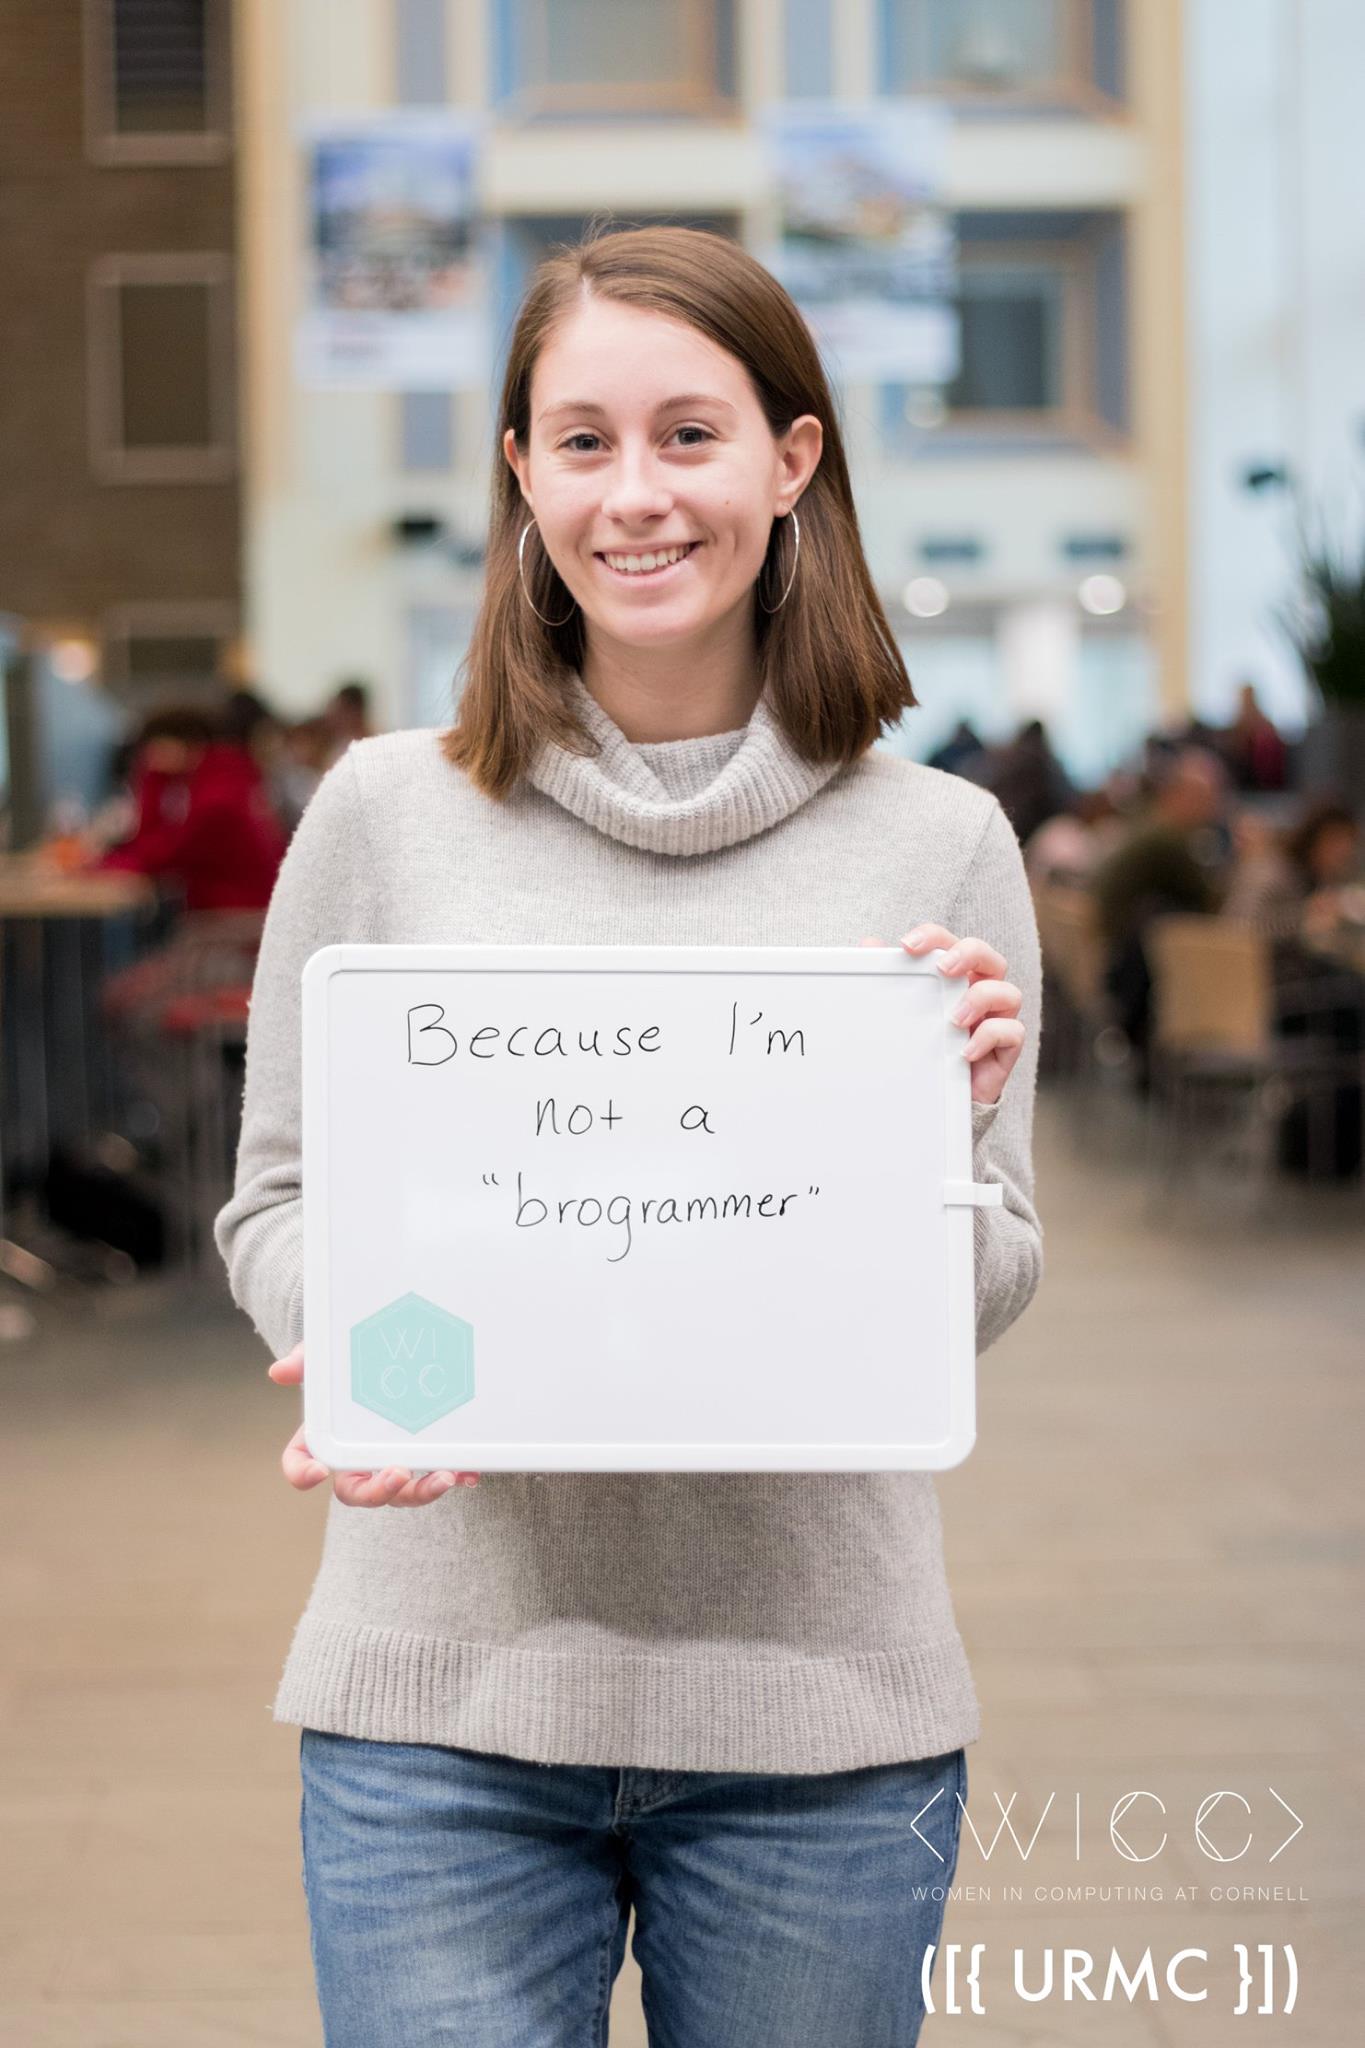 Because I'm
not a
"brogrammer"
WI
CC
<WICC>
WOMEN IN COMPUTING AT CORNELL
([{ URMC }])